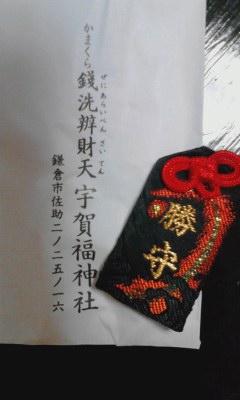 かまくら
錢洗辨財天宇賀福神社
ぜにあらいべんざいてん
鎌倉市佐助二ノ二五ノ一六
勝守